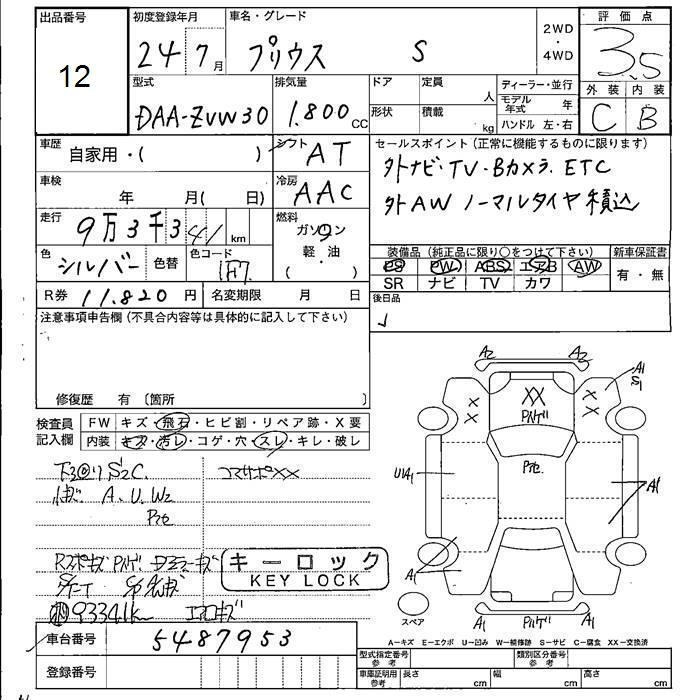 出品番号
12
初度登録年月
24 7月
車名・グレード
プリウス S
2WD
・
4WD
評価点
3.5
外装 内装
C B
型式
DAA-ZVW30
排気量
1.800 CC
ドア
形状
定員 人
積載 kg
ディーラー・並行
モデル年式 年
ハンドル 左・右
車歴
自家用・( )
シフト
AT
車検
年 月( 日)
冷房
AAC
走行
9万3千341 km
燃料
ガソリン
軽・油
( )
色
シルバー
色替
色コード
1F7
R券 11.820 円
名変期限 月 日
セールスポイント(正常に機能するものに限ります)
外ナビ・TV・Bカメラ. ETC
外AW ノーマルタイヤ積込
装備品(純正品に限り○をつけて下さい)
PS PW ABS エアB AW
SR ナビ TV カワ
新車保証書
有・無
後日品
注意事項申告欄(不具合内容等は具体的に記入して下さい)
修復歴 有 〔箇所 〕
検査員記入欄
FW キズ・飛石・ヒビ割・リペア跡・X要
内装 キズ・汚レ・コゲ・穴・スレ・キレ・破レ
S2C.
コマサポXX
A. U. W2
キーロック
KEY LOCK
93341k
車台番号
5487953
登録番号
A2 A2
A1
S1
XX
XX
XX
U1A1
A1
A1
スペア
A1 A1
A-キズ E-エクボ U-凹み W-補修跡 S-サビ C-腐食 XX-交換済
型式指定番号 参考
類別区分番号 参考
車庫証明用 参考
長さ cm
幅 cm
高さ cm